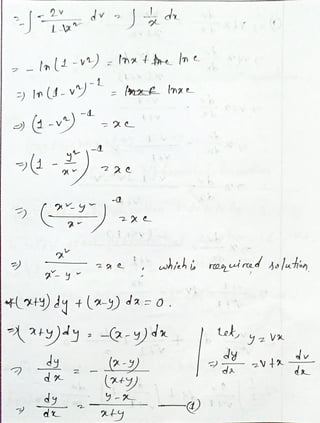 = -∫ -2v/(1-v²) dv = ∫ 1/x dx
= -ln(1-v²) = lnx + lnc
⇒ ln(1-v²)⁻¹ = lnxc
⇒ (1-v²)⁻¹ = xc
⇒ (1 - y²/x²)⁻¹ = xc
⇒ ((x²-y²)/x²)⁻¹ = xc
⇒ x²/(x²-y²) = xc ; which is required solution
(x+y)dy + (x-y)dx = 0.
⇒ (x+y)dy = -(x-y)dx
⇒ dy/dx = -(x-y)/(x+y)
⇒ dy/dx = (y-x)/(x+y) —(1)
Let, y = vx
⇒ dy/dx = v+x dv/dx